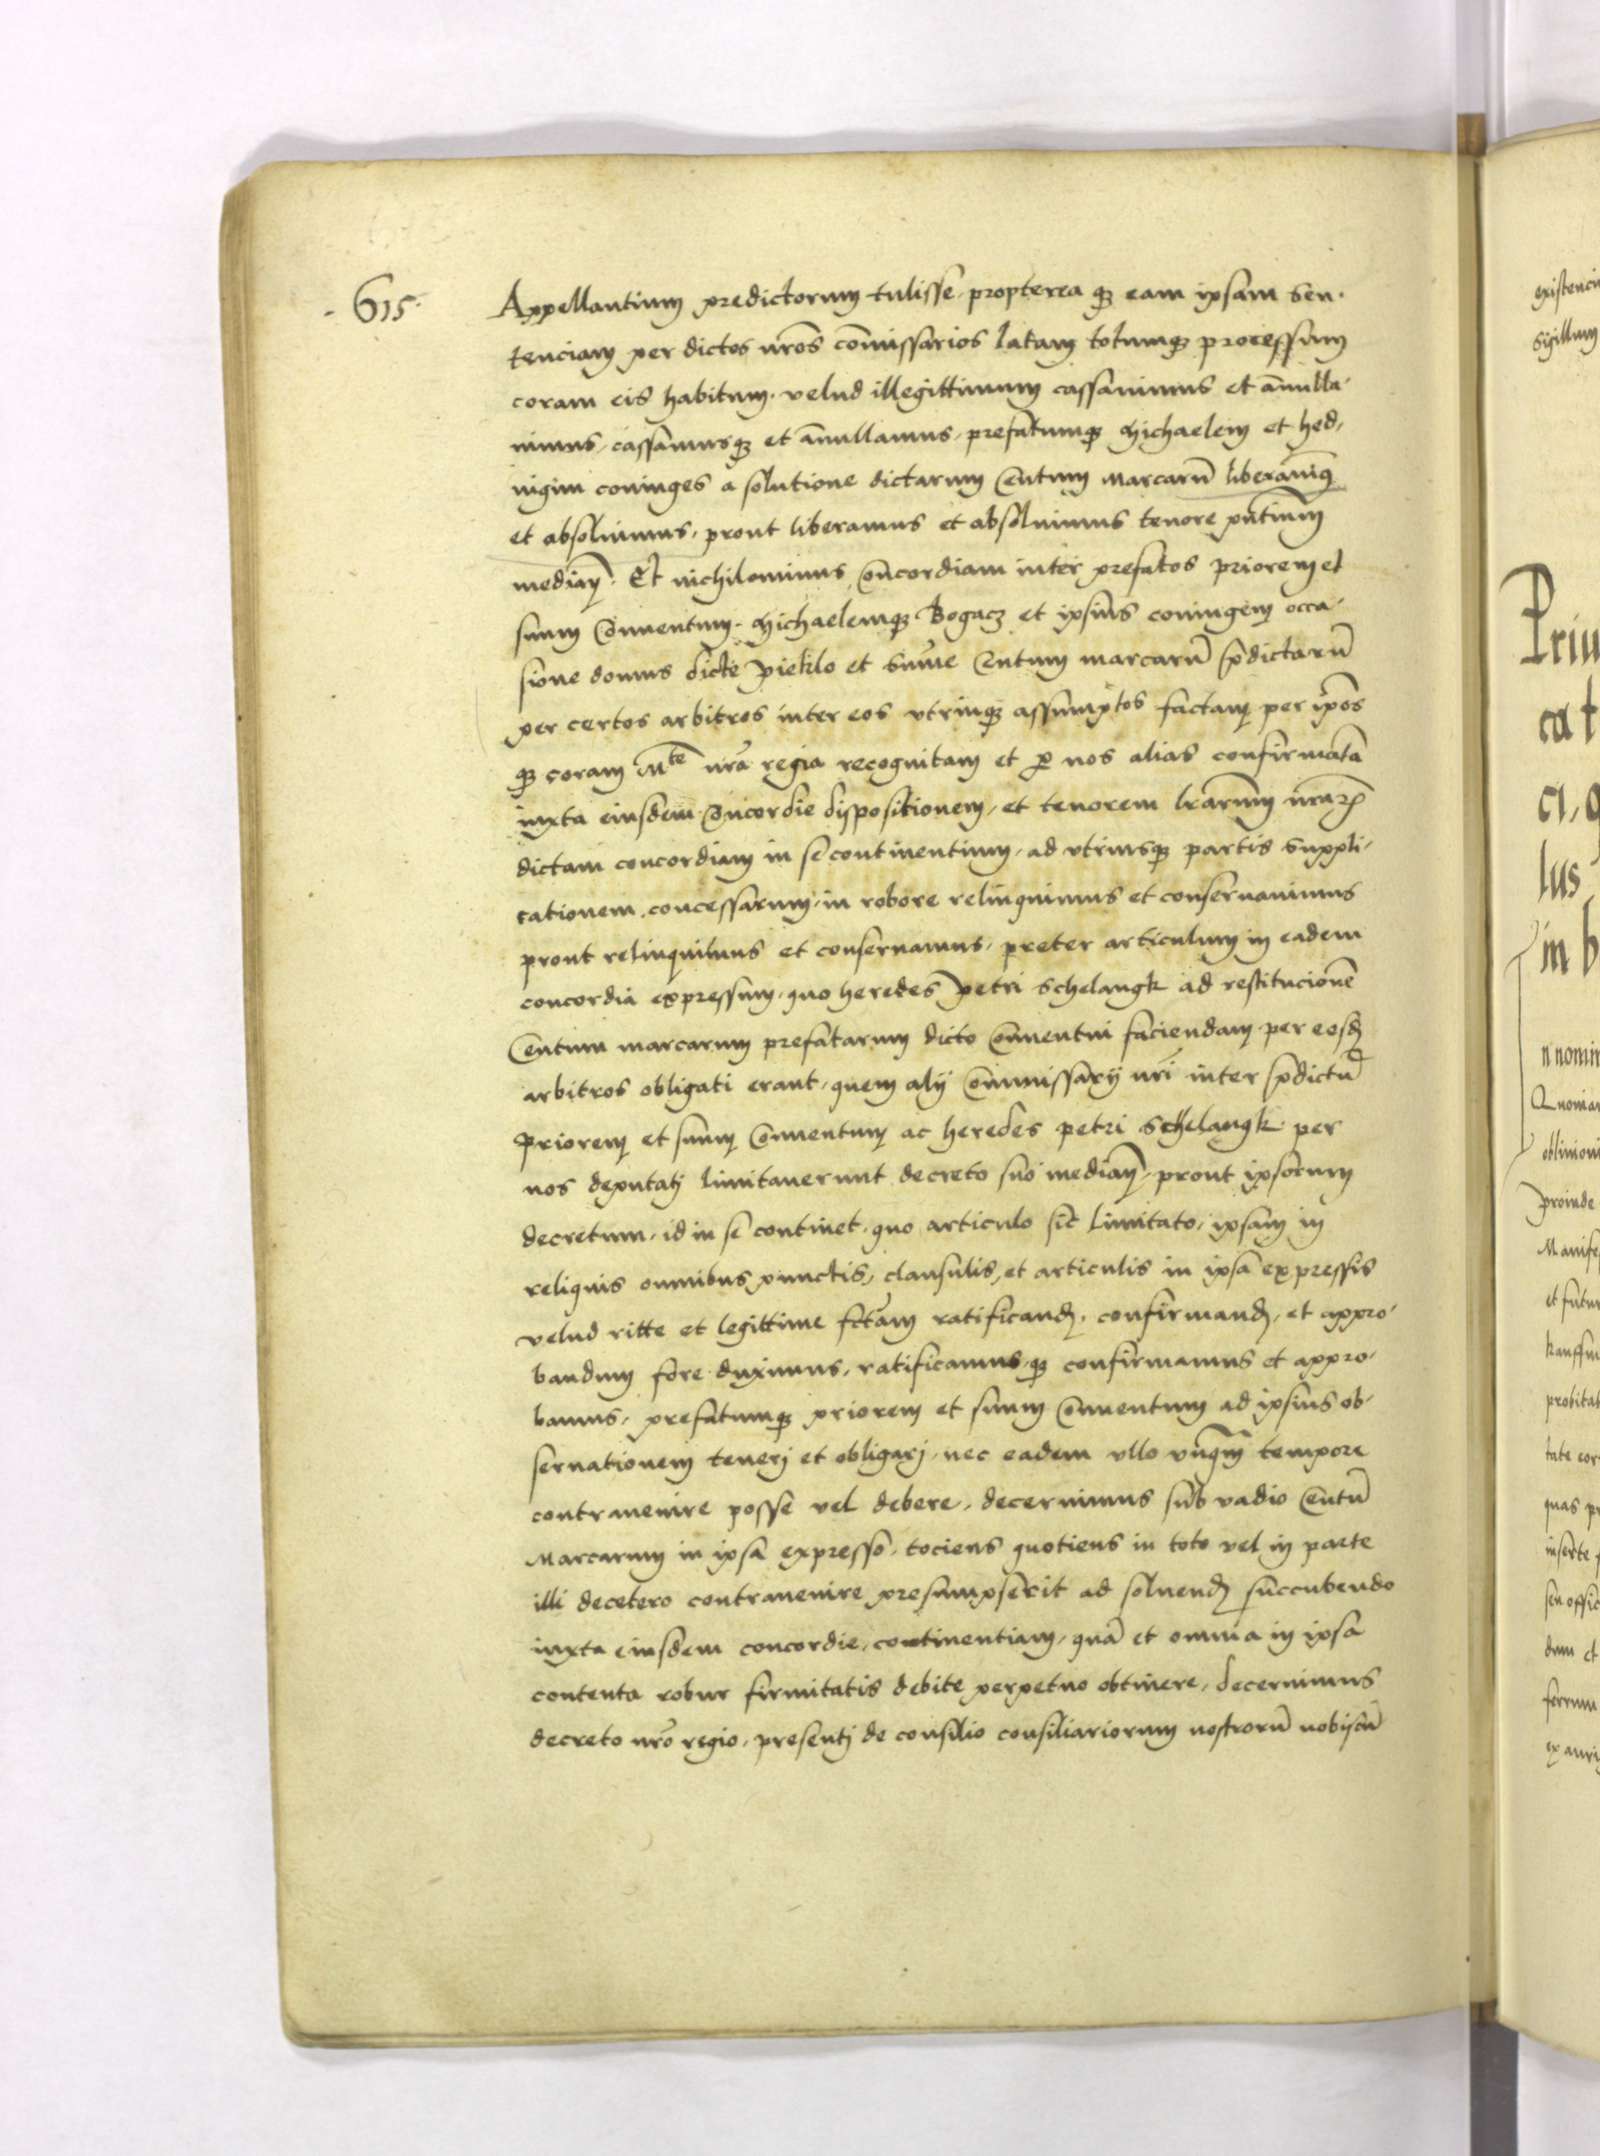 · 615 ·
Appellantium predictorum tulisse, propterea qz eam ipsam Sen-
tenciam per dictos nr̃os com̃issarios latam totumqz processum
coram eis habitum, velud illegittimum cassavimus et an̄ulla-
uimus, cassamusqz et an̄ullamus, prefatumqz Michaelem et hed-
uigim coniuges a solutione dictarum Centum marcarū liberauimꝰ
et absoluimus, prout liberamus et absoluimus tenore pn̄tium
median̄. Et nichilominus Concordiam inter prefatos priorem et
suum Conuentum Michaelemqz Bogacz et ipsius coniugem occa-
sione domus dicte Pieklo et Sum̄e Centum marcarū p̄dictarū
per certos arbitros inter eos vtrinqz assumptos factam per ip̄os
qz coram Mte nr̃a regia recognitam et ꝑ nos alias confirmatā
iuxta eiusdem Concordie dispositionem, et tenorem lr̃arum nr̃aꝝ
dictam concordiam in se continentium, ad vtriusqz partis suppli-
cationem concessarum, in robore relinquimus et conseruauimus
prout relinquimus et conseruamus, preter articulum in eadem
concordia expressum, quo heredes Petri Schelangk ad restitucionē
Centum marcarum prefatarum dicto Conuentui faciendam per eosd̄
arbitros obligati erant, quem alij Commissarij nr̃i inter p̄dictū
Priorem et suum Conuentum ac heredes petri Schelangk per
nos deputatj limitauerunt decreto suo median̄, prout ipsorum
decretum, id in se continet, quo articulo sic limitato, ipsam in
reliquis omnibus punctis, clausulis, et articulis in ipsa expressis
velud ritte et legittime fc̄tam ratificand̄, confirmand̄, et appro-
bandum fore duximus, ratificamus qz confirmamus et appro-
bamus, prefatumqz priorem et suum Conuentum ad ipsius ob-
seruationem tenerj et obligarj, nec eadem vllo vnq̄m tempore
contrauenire posse vel debere, decernimus sub vadio Centū
Marcarum in ipsa expresso, tociens quotiens in toto vel in parte
illi decetero contrauenire presumpserit ad soluend̄ succubendo
iuxta eiusdem concordie, continentiam, quā et omnia in ipsa
contenta robur firmitatis debite perpetuo obtinere, decernimus
decreto nr̃o regio, presentj de consilio consiliariorum nostrorū nobiscū
sigillum
Priu
cat
ci,
lus
in b
n nomin
Quoniam
proinde
Manife
et futur
probitat
tate
quas
inserte
dum et